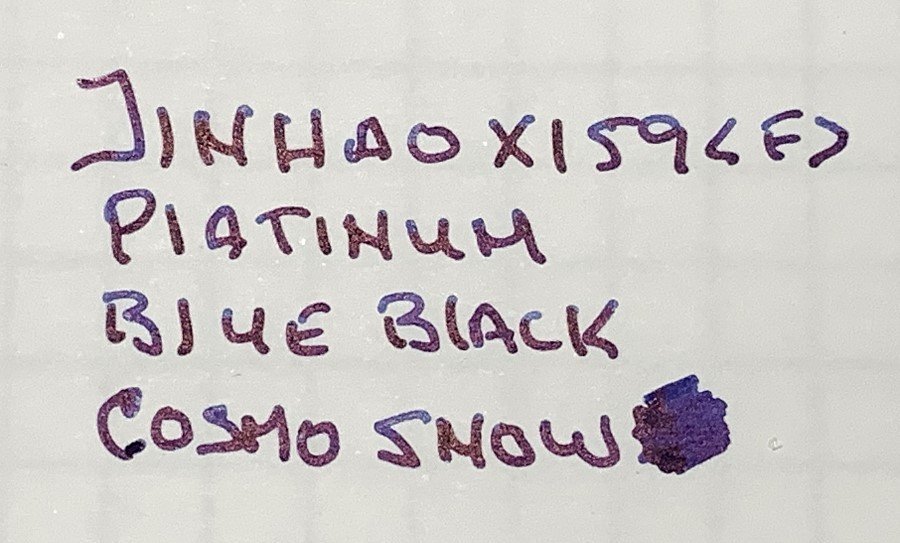 JINHAO X159 <F>
PLATINUM
BLUE BLACK
COSMO SNOW